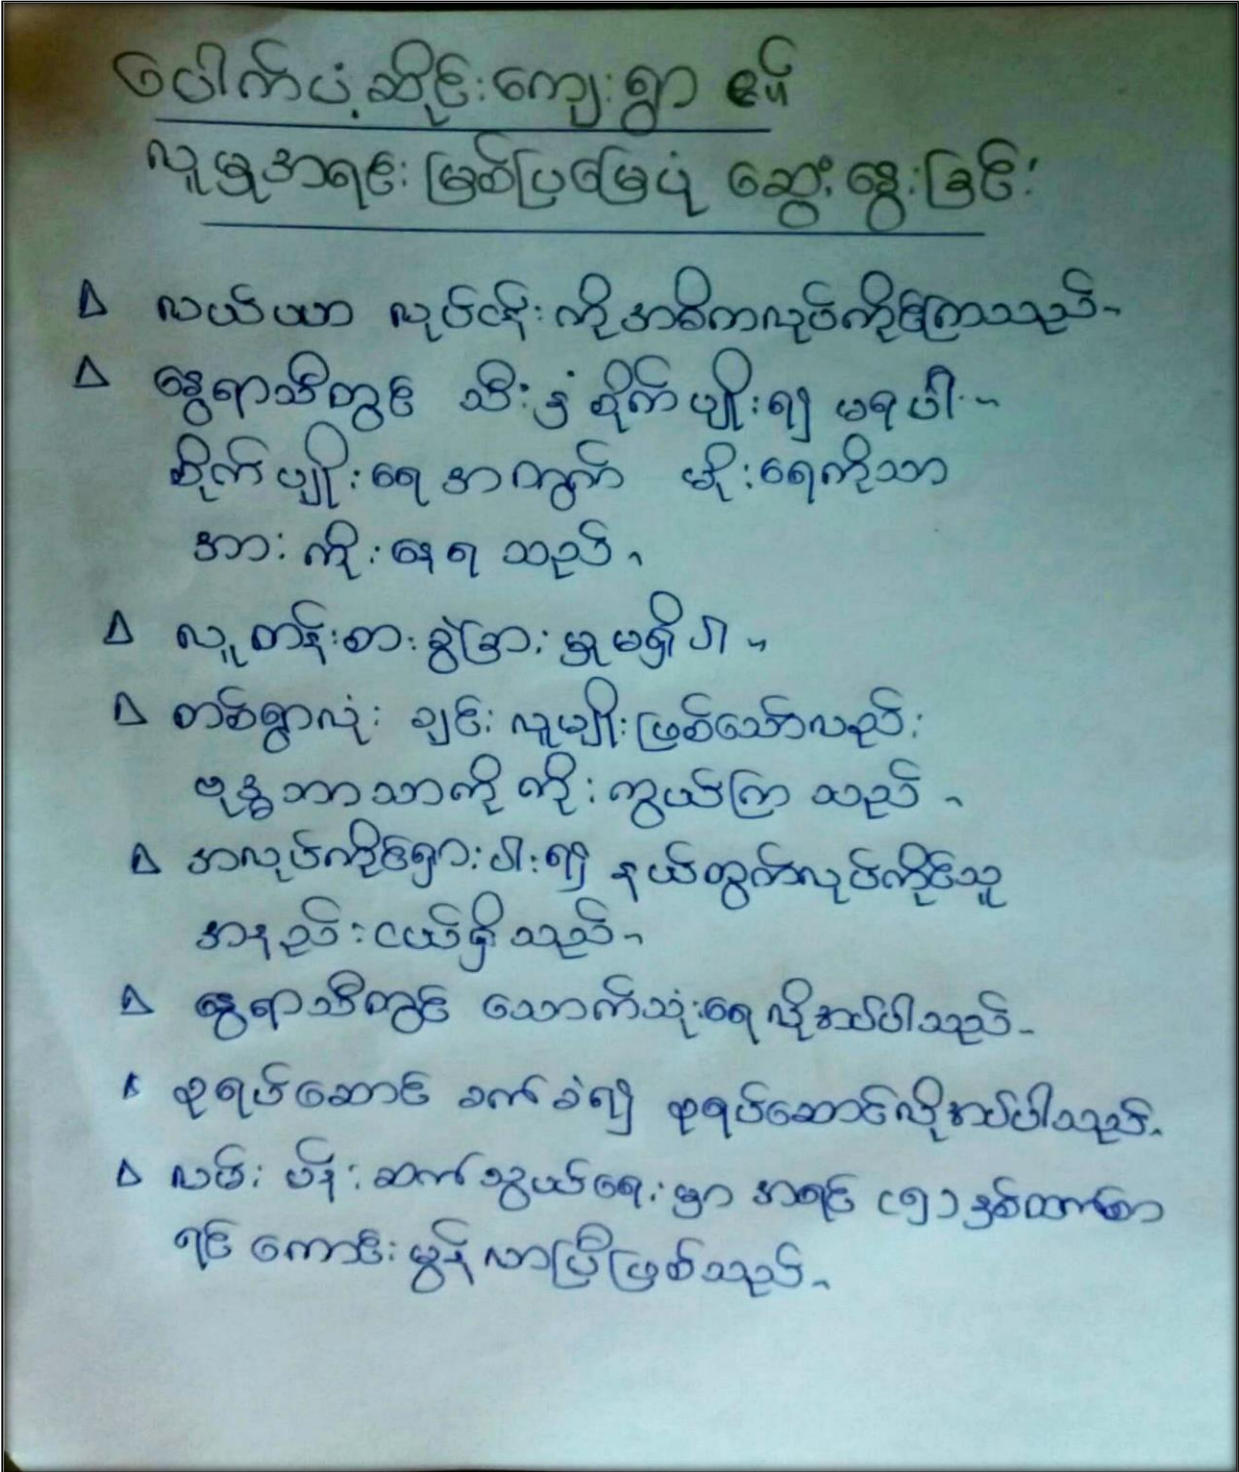 ပေါက်ပံ့ဆိုင်းကျေးရွာ ၏
လူမှုအရင်းမြစ်ပြမြေပုံ ဆွေးနွေးခြင်း
Δ လယ်ယာ လုပ်ငန်းကို အဓိကလုပ်ကိုင်ကြသည်၊
Δ နွေရာသီတွင် သီးနှံစိုက်ပျိုး၍ မရပါ။
စိုက်ပျိုးရေအတွက် မိုးရေကိုသာ
အားကိုးနေရသည်၊
Δ လူတန်းစားခွဲခြားမှုမရှိပါ။
Δ တစ်ရွာလုံး ချင်းလူမျိုးဖြစ်သော်လည်း
ဗုဒ္ဓဘာသာကို ကိုးကွယ်ကြသည်၊
Δ အလုပ်ကိုင်ရှားပါး၍ နယ်ထွက်လုပ်ကိုင်သူ
အနည်းငယ်ရှိသည်၊
Δ နွေရာသီတွင် သောက်သုံးရေလိုအပ်ပါသည်၊
Δ စုရပ်ဆောင် ခက်ခဲ၍ စုရပ်ဆောင်လိုအပ်ပါသည်၊
Δ လမ်းပန်းဆက်သွယ်ရေးမှာ အရင် (၅) နှစ်ထက်စာ
ရင် ကောင်းမွန်လာပြီဖြစ်သည်၊